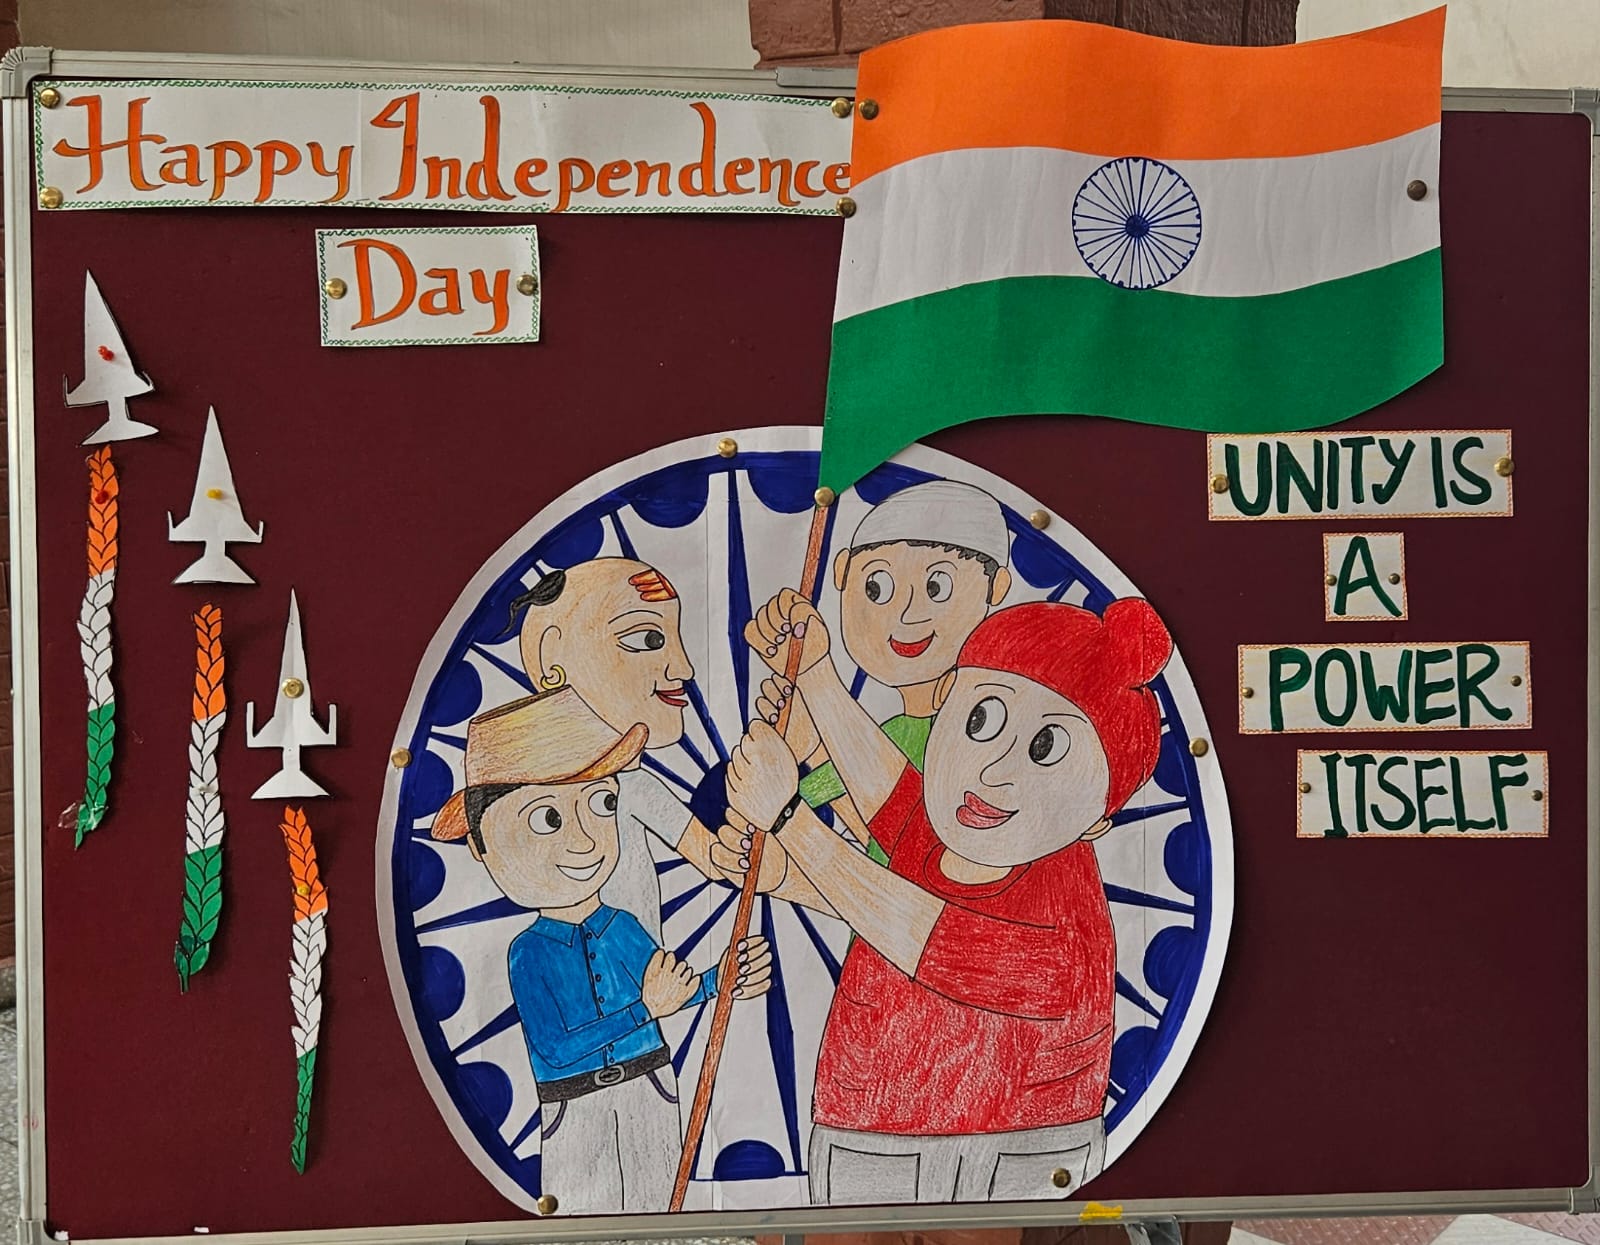 Happy Independence
Day
UNITY IS
A
POWER
ITSELF